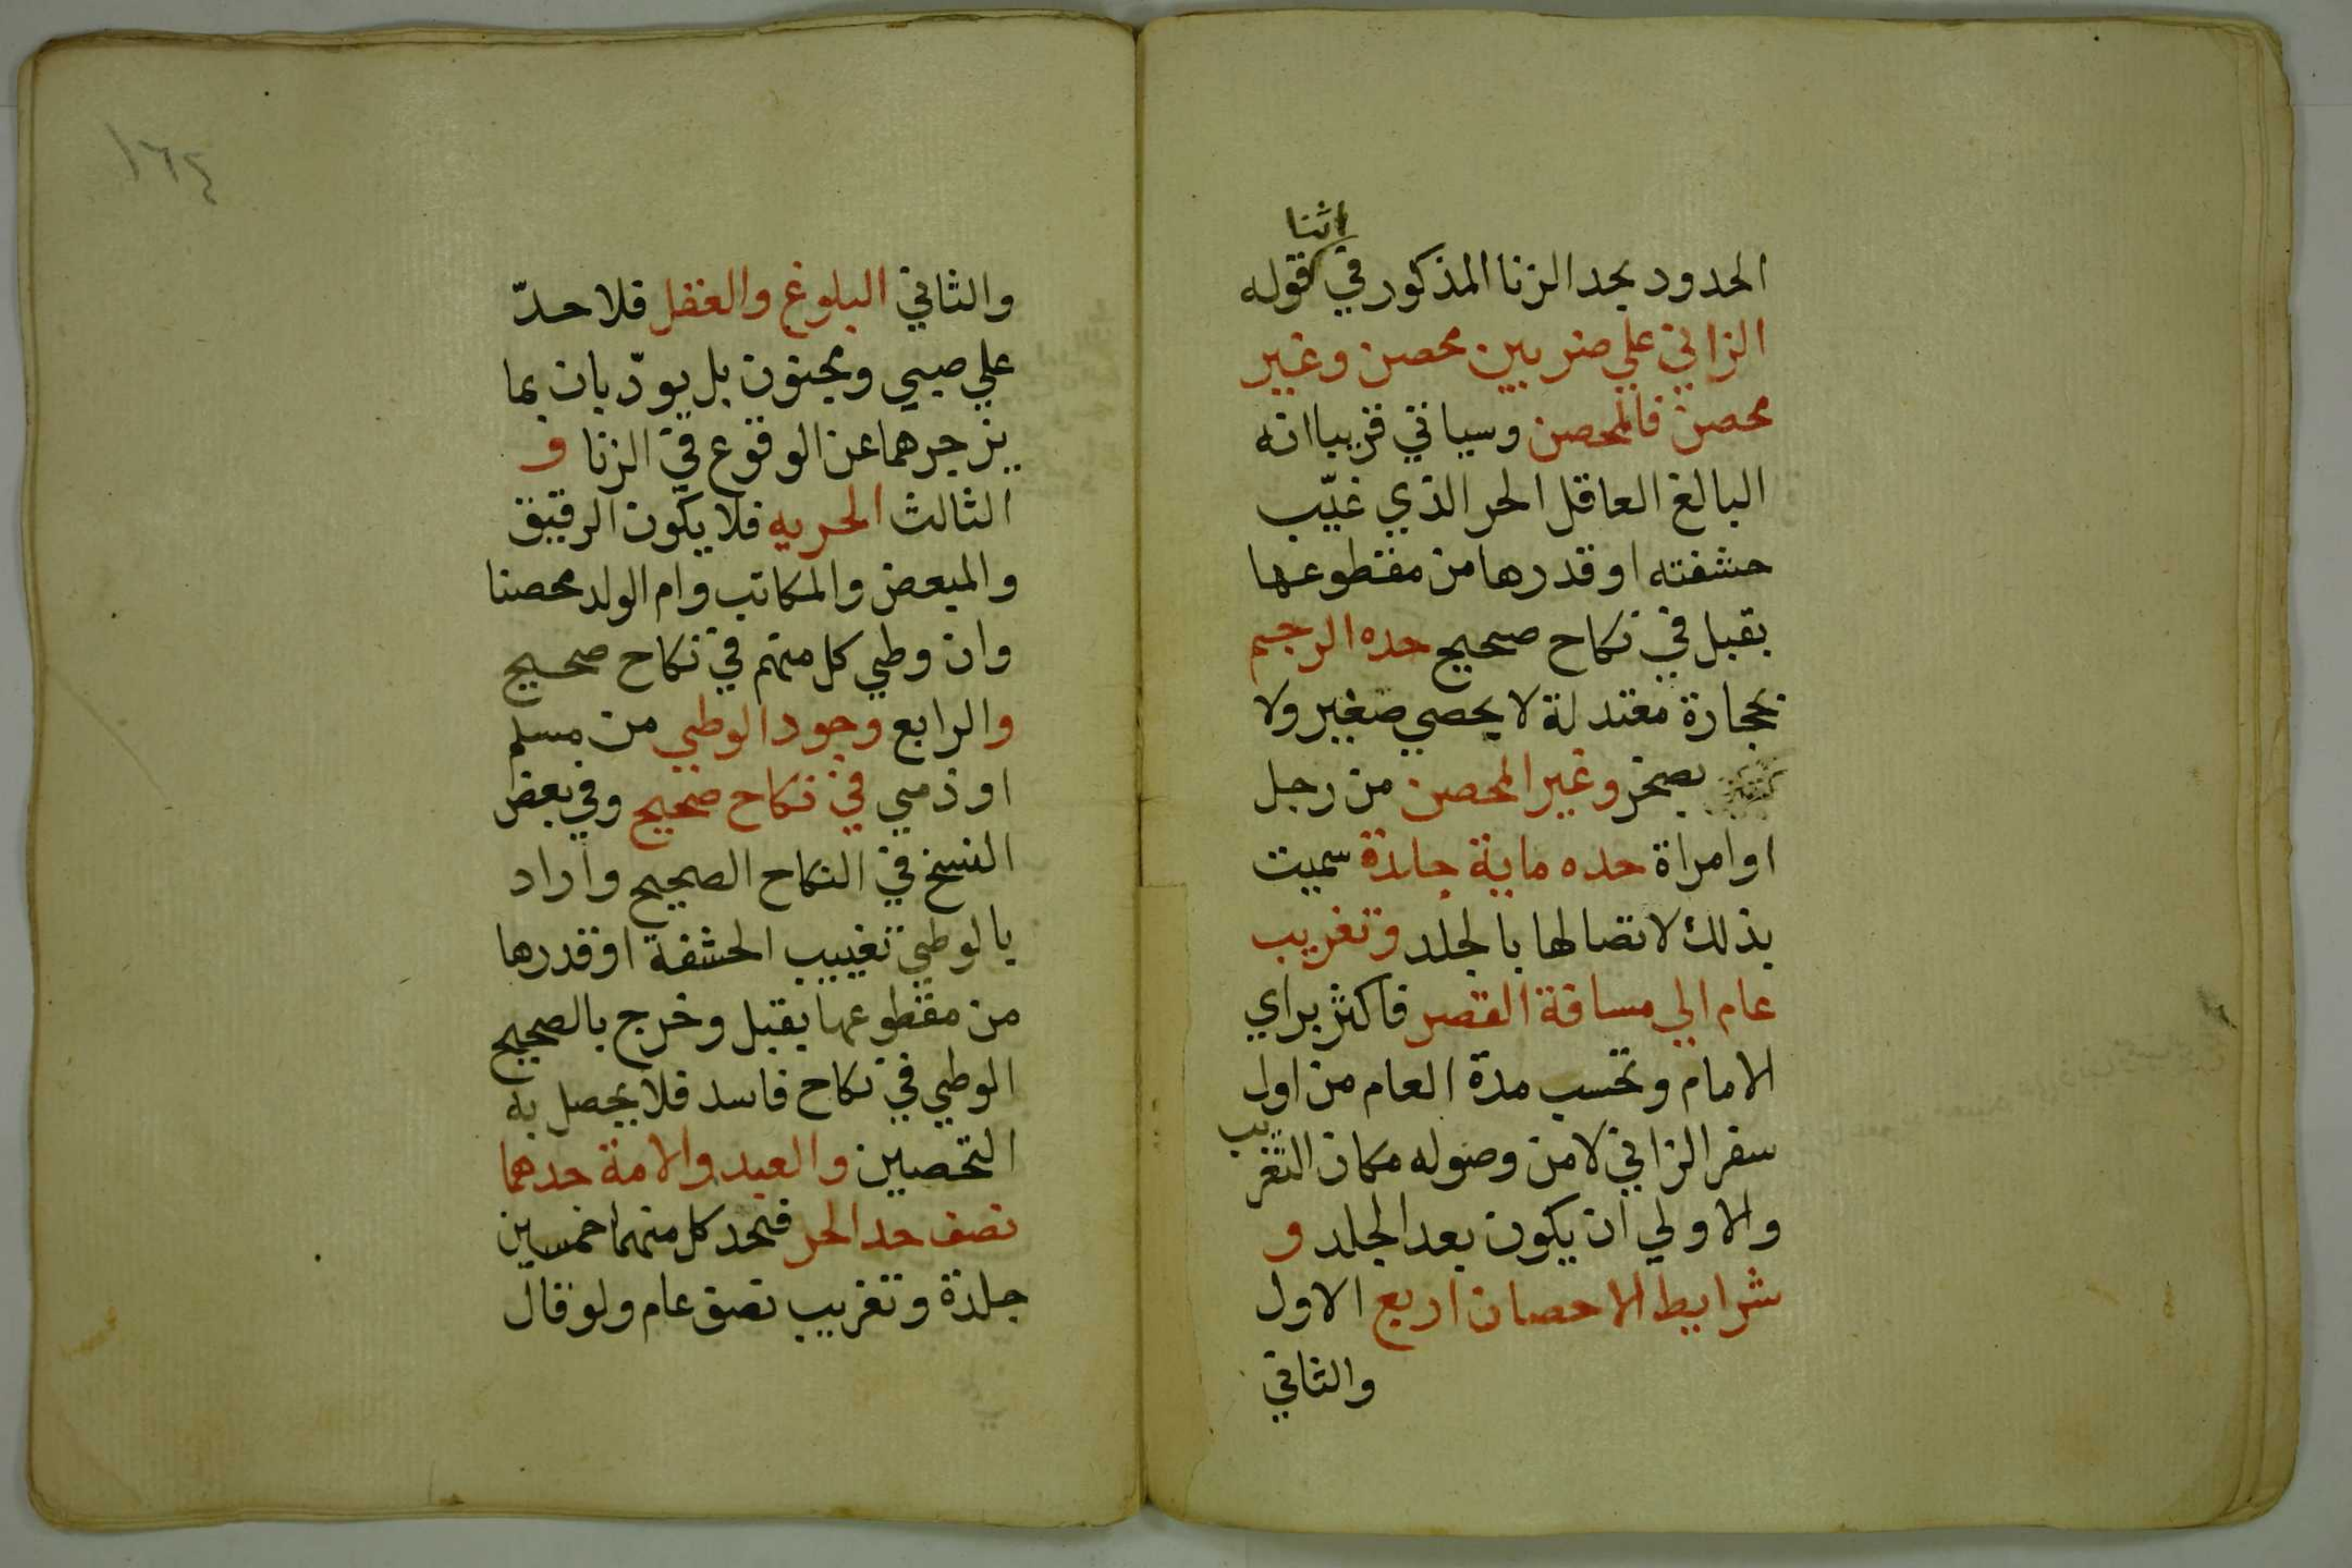 اثنا
الحدود بحد الزنا المذكور في قوله
الزاني علي ضربين محصن وغير
محصن فالمحصن وسياتي قريبا انه
البالغ العاقل الحر الذي غيّب
حشفته او قدرها من مقطوعها
بقبل في نكاح صحيح حده الرجم
بحجارة معتدلة لا بحصي صغير ولا
بصخر وغير المحصن من رجل
او امراة حده ماية جلدة سميت
بذلك لاتصالها بالجلد وتغريب
عام الي مسافة القصر فاكثر براي
الامام وتحسب مدة العام من اول
سفر الزاني لا من وصوله مكان التغريب
والاولي ان يكون بعد الجلد و
شرايط الاحصان اربع الاول
والثاني
١٦٤
والثاني البلوغ والعقل فلا حدّ
علي صبي ومجنون بل يودّبان بما
يزجرهما عن الوقوع في الزنا و
الثالث الحريه فلا يكون الرقيق
والمبعض والمكاتب وام الولد محصنا
وان وطي كل منهم في نكاح صحيح
والرابع وجود الوطي من مسلم
او ذمي في نكاح صحيح وفي بعض
النسخ في النكاح الصحيح واراد
بالوطي تغييب الحشفة او قدرها
من مقطوعها بقبل وخرج بالصحيح
الوطي في نكاح فاسد فلا يحصل به
التحصين والعبد والامة حدهما
نصف حد الحر فيحد كل منهما خمسين
جلدة وتغريب نصف عام ولو قال